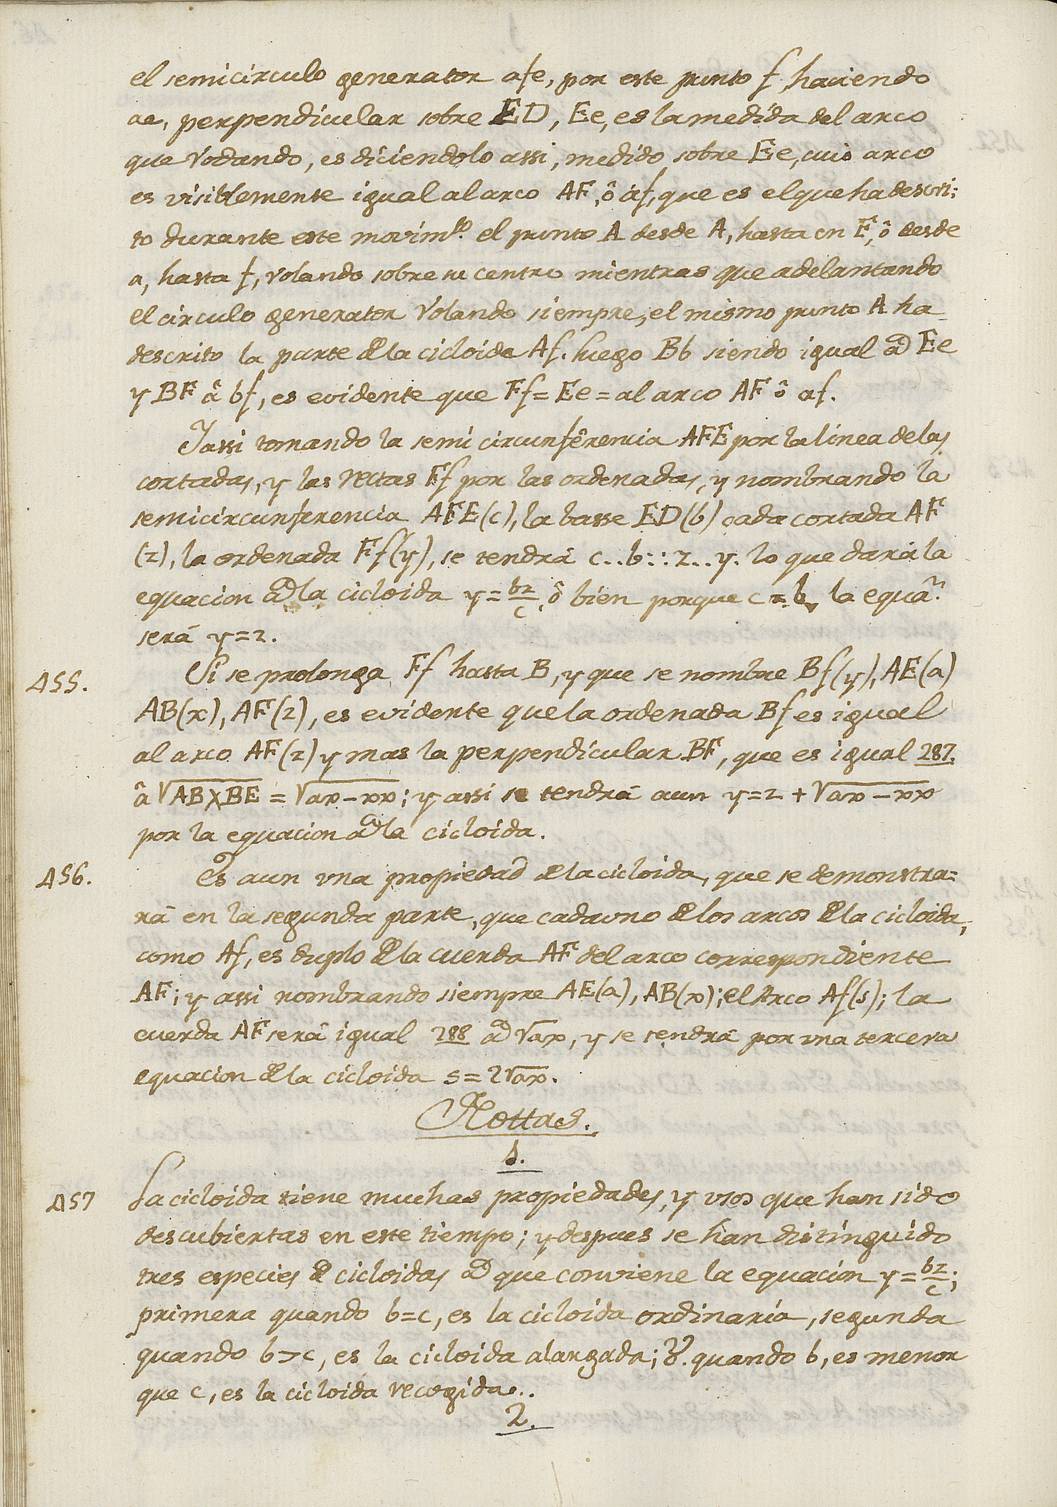 el semicirculo generator afe, por este punto f, haciendo
ae, perpendicular sobre ED, Ee, es la medida del arco
que rodando, es diciendolo assi, medido sobre Ee, cuio arco
es visiblemente igual al arco AF, ô af, que es el que ha descri:
to durante este movim.to el punto A desde A, hasta en F, ô desde
a, hasta f, rolando sobre su centro mientras que adelantando
el circulo generator rolando siempre, el mismo punto A ha
descrito la parte de la cicloide Af. luego Bb siendo igual à Ee
y BF â bf, es evidente que Ff = Ee = al arco AF ô af.
Y assi tomando la semi circunferencia AFE por la linea de las
cortadas, y las rectas Ff por las ordenadas, y nombrando la
semicircunferencia AFE (c), la basse ED (b) cada cortada AF
(z), la ordenada Ff (y), se tendrá c..b::z..y. lo que dará la
equacion à la cicloida y = bz/c, ô bien porque c = b, la equa.n
será y=z.
455. Si se prolonga Ff hasta B, y que se nombre Bf (y), AE (a)
AB (x), AF (z), es evidente que la ordenada Bf es igual
al arco AF (z) y mas la perpendicular BF, que es igual 287.
â √AB×BE = √ax-xx; y assi se tendrá aun y=z+√ax-xx
por la equacion à la cicloida.
456. Es aun una propiedad de la cicloida, que se demonstra=
rá en la segunda parte, que cada uno de los arcos de la cicloida,
como Af, es duplo de la cuerda AF del arco correspondiente
AF; y assi nombrando siempre AE (a), AB (x); el Arco Af (s); la
cuerda AF será igual 288 à √ax, y se tendrá por una tercera
equacion de la cicloida s=2√ax.
Nottas.
1.
457 La cicloida tiene muchas propiedades, y usos que han sido
descubiertas en este tiempo; y despues se han distinguido
tres especies de cicloidas à que conviene la equacion y=bz/c;
primera quando b=c, es la cicloida ordinaria, segunda
quando b>c, es la cicloida alargada; quando b, es menor
que c, es la cicloida recogida..
2.